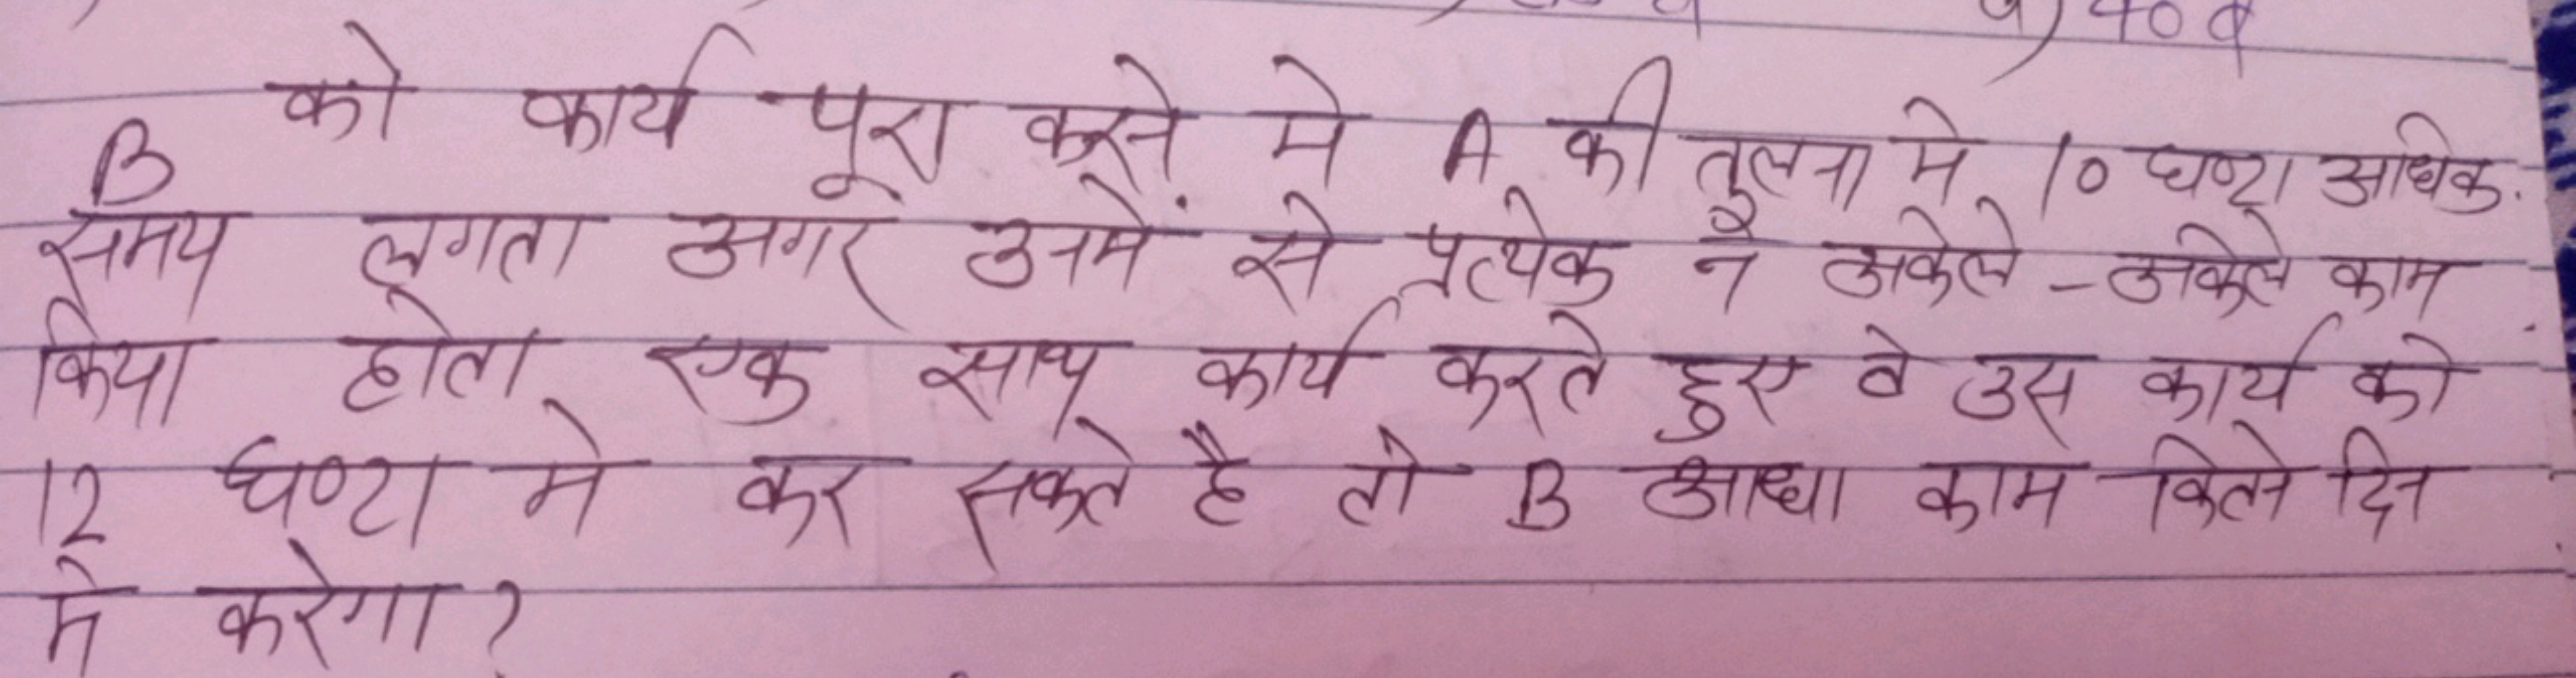 B को कार्य पूरा करने मे A की तुलना मे 10 घण्टा अधिक
समय लगता अगर उनमें से प्रत्येक ने अकेले - अकेले काम
किया होता एक साथ कार्य करते हुए वे उस कार्य को
12 घण्टा मे कर सकते है तो B आधा काम कितने दिन
मे करेगा ?